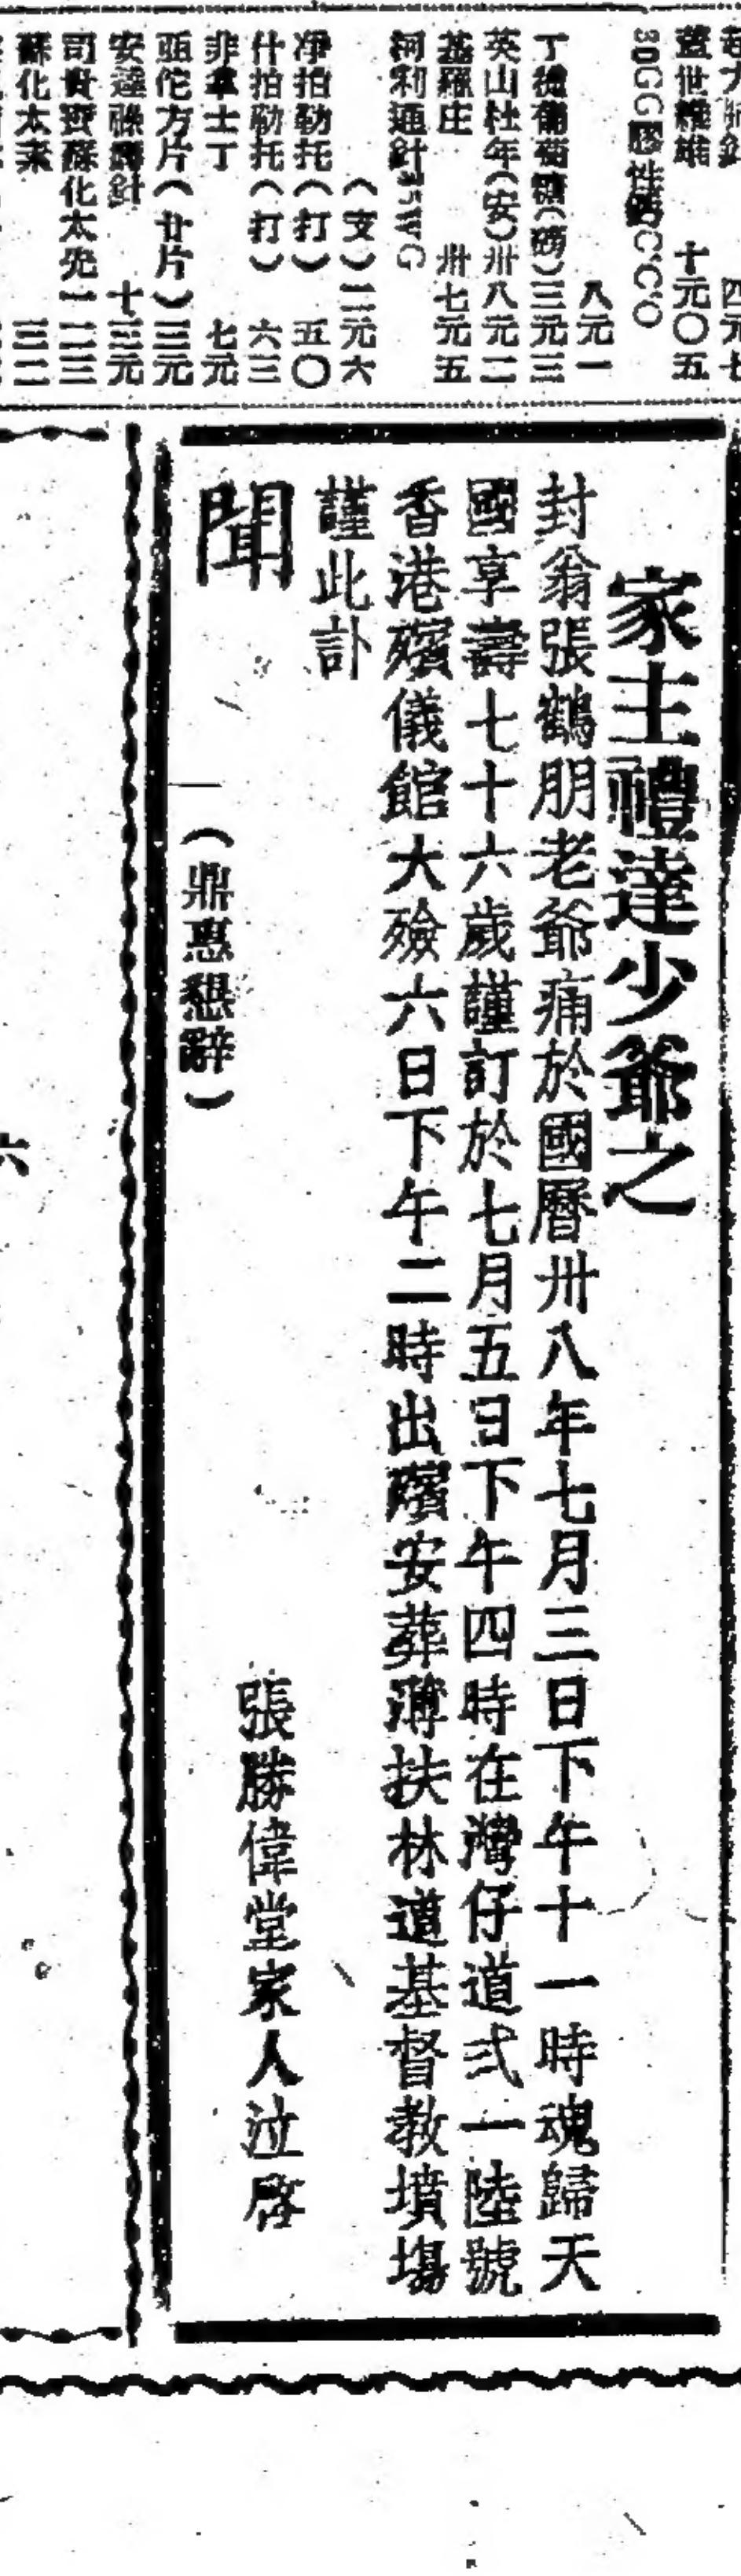 四元七
蓋世維雄 十元〇五
3DGG膠性鈣C'C'O
八元一
丁德葡萄糖(磅)三元三
英山杜年(安)卅八元二
基羅庄 卅七元五
柯利通針
(支)二元六
淨拍勒托(打) 五〇
什拍勒托(打) 六三
非拿士丁 七元
亞佗方片(廿片)三元
安達 針 十三元
司 寶蘇化太先一二三
蘇化太素 三二
家主禮達少爺之
封翁張鶴朋老爺痛於國曆卅八年七月三日下午十一時魂歸天
國享壽七十六歲謹訂於七月五日下午四時在灣仔道弍一陸號
香港殯儀館大殮六日下午二時出殯安葬薄扶林道基督教墳塲
謹此訃
聞
張勝偉堂家人泣啓
(鼎惠懇辭)
六